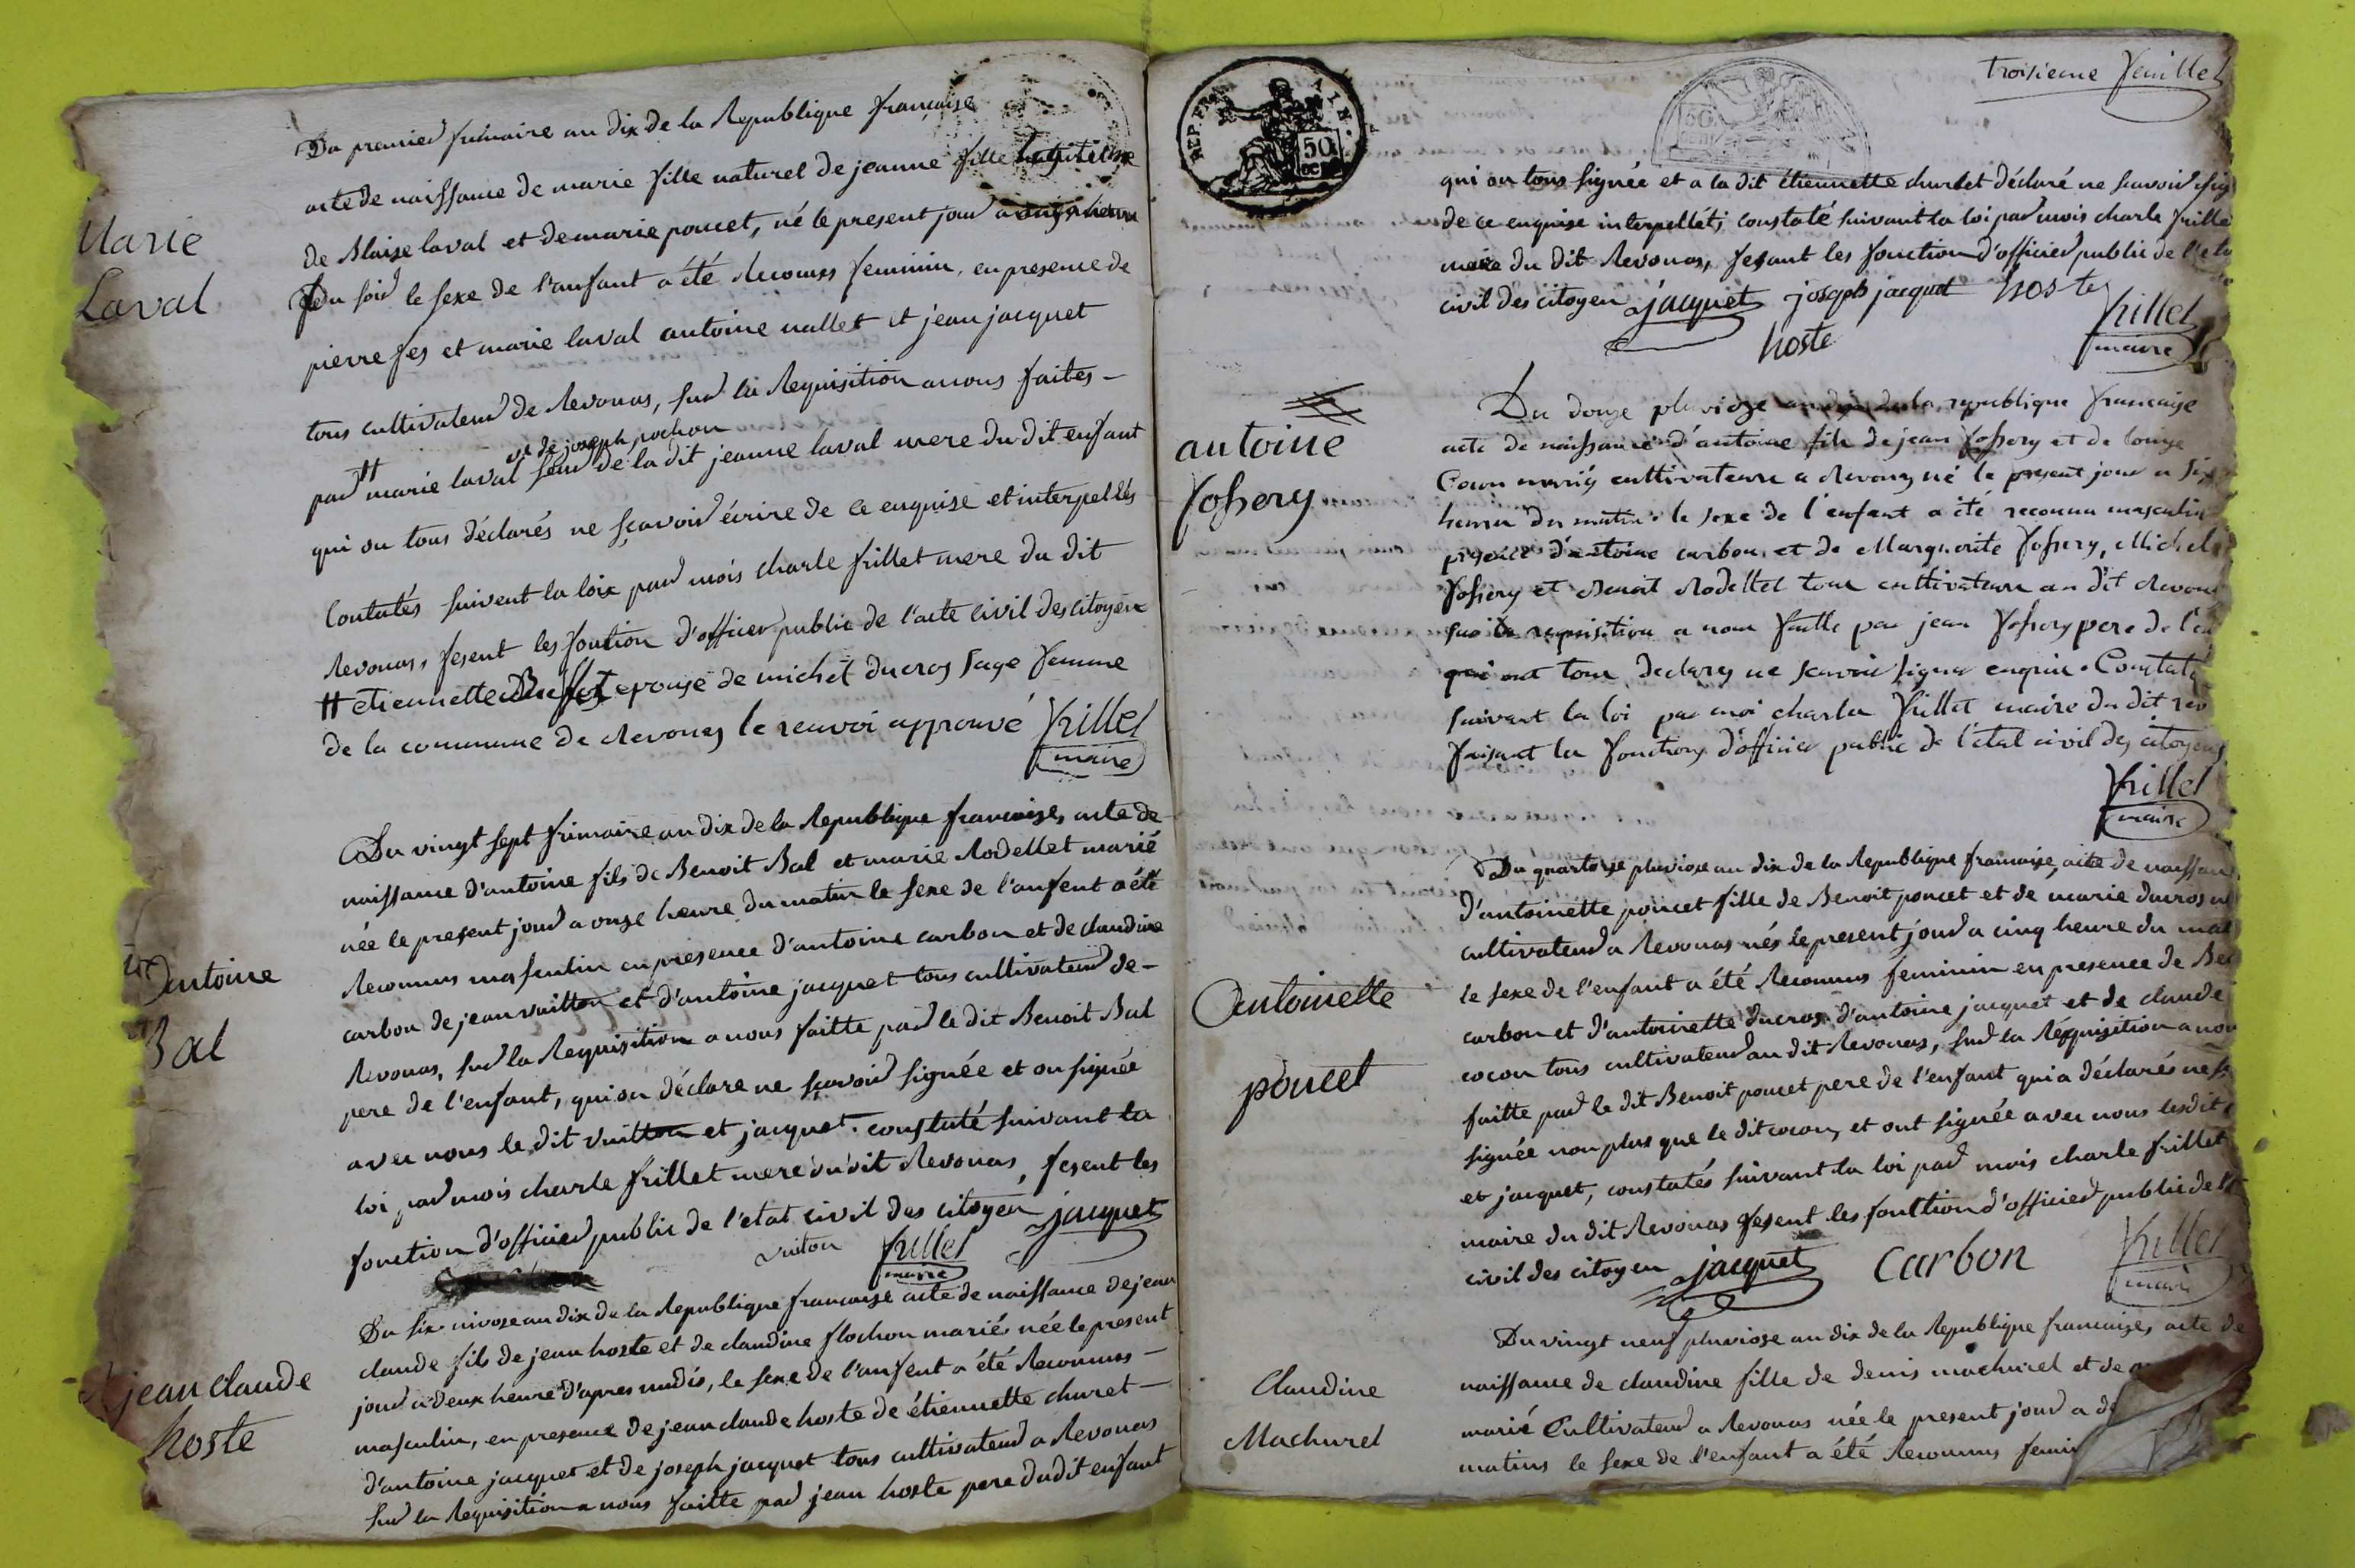 Marie
Laval
Du premier frimaire an dix de la Republique française
acte de naissance de marie fille naturel de jeanne fille
de Blaise laval et de marie poncet, né le present jour a
du soir le sexe de l'anfant a été Reconuss feminin, en presence de
pierre fes et marie laval antoine nallet et jean jacquet
tous cultivateur de Revonas, sur la Requisition a nous faites -
ve de joseph pochon
par # marie laval seur de la dit jeanne laval mere du dit enfant
qui on tous déclarés ne sçavoir écrire de ce enquise et interpellés
Contatés suivent la loix par mois charle frillet mere du dit
Revonas, fesent les fontion d'officer public de l'acte civil des citoyen
# etiennette epouse de michel ducros sage femme
de la commune de Revonas le renvoi approuvé frillet
maire
antoine
Bal
Du vingt sept frimaire an dix de la Republique francaise, acte de
naissance d'antoine fils de Benoit Bal et marie Rodellet marié
née le present jour a onze heure du matin le sexe de l'anfent a été
Reconnus masculin en presence d'antoine carbon et de claudine
carbon de jean vuitton et d'antoine jacquet tous cultivateur de -
Revonas, sur la Requisition a nous faitte par le dit Benoit Bal
pere de l'enfant, qui on déclare ne sçavoir signée et on signée
avec nous le dit vuitton et jacquet. constaté suivant la
loi par mois charle frillet mere du dit Revonas, fesent les
fonction d'officier public de l'etat civil des citoyen jacquet
vuiton frillet
maire
jean claude
hoste
Du six nivose an dix de la Republique francaise acte de naissance de jean
claude fils de jean hoste et de claudine flochon mariés née le present
jour a deux heure d'apres midis, le sexe de l'anfent a été Reconnus -
masculin, en presence de jean claude hoste de étiennette churlet -
d'antoine jacquet et de joseph jacquet tous cultivateur a Revonas
sur la Requisition a nous faitte par jean hoste pere dudit enfant
REP. FRA.
50
troisieme feuillet
qui on tous signée et a la dit étiennette churlet déclaré ne scavoir sig
de ce enquise interpellét, constaté suivant la loi par mois charle frille
maire du dit Revonas, fesant les fonction d'officier public de l'eta
civil des citoyen jacquet joseph jacquet hoste
hoste
frillet
maire
antoine
fossery
Du douze pluviose an dix de la republique francaise
acte de naissance d'antoine fils de jean fossery et de louise
Cocon mariés cultivateurs a Revonas né le present jour a six
heures du matin. le sexe de l'enfant a été reconnu masculin
presence d'antoine carbon et de Marguerite fossery, Michel
fossery et Benoit Rodellet tous cultivateurs au dit Revonas
sur la requisition a nous faitte par jean fossery pere de l'en
qui ont tous declarés ne scavoir signer enquis. Constaté
suivant la loi par moi charles frillet maire du dit rev
faisant les fonctions d'officier public de l'état civil des citoyens
frillet
maire
Antoinette
poncet
Du quartorse pluviose an dix de la Republique francaise, acte de naissan
d'antoinette poncet fille de Benoit poncet et de marie ducros
cultivateur a Revonas nés le present jour a cinq heure du mat
le sexe de l'enfant a été Reconnus feminin en presence de Be
carbon et d'antoinette ducros d'antoine jacquet et de claude
cocon tous cultivateur au dit Revonas, sur la Réquisition a nou
faitte par le dit Benoit poncet pere de l'enfant qui a déclarés ne s
signée non plus que le dit cocon, et ont signée avec nous lesdit
et jacquet, constatés suivant la loi par mois charle frillet
maire du dit Revonas fesent les fonttion d'officier public de l'
civil des citoyen jacquet Carbon frillet
maire
Claudine
Machurel
Du vingt neuf pluviose an dix de la Republique francaise, acte de
naissance de claudine fille de denis machurel et de
marié Cultivateur a Revonas née le present jour a d
matins le sexe de l'enfant a été Reconnus femin